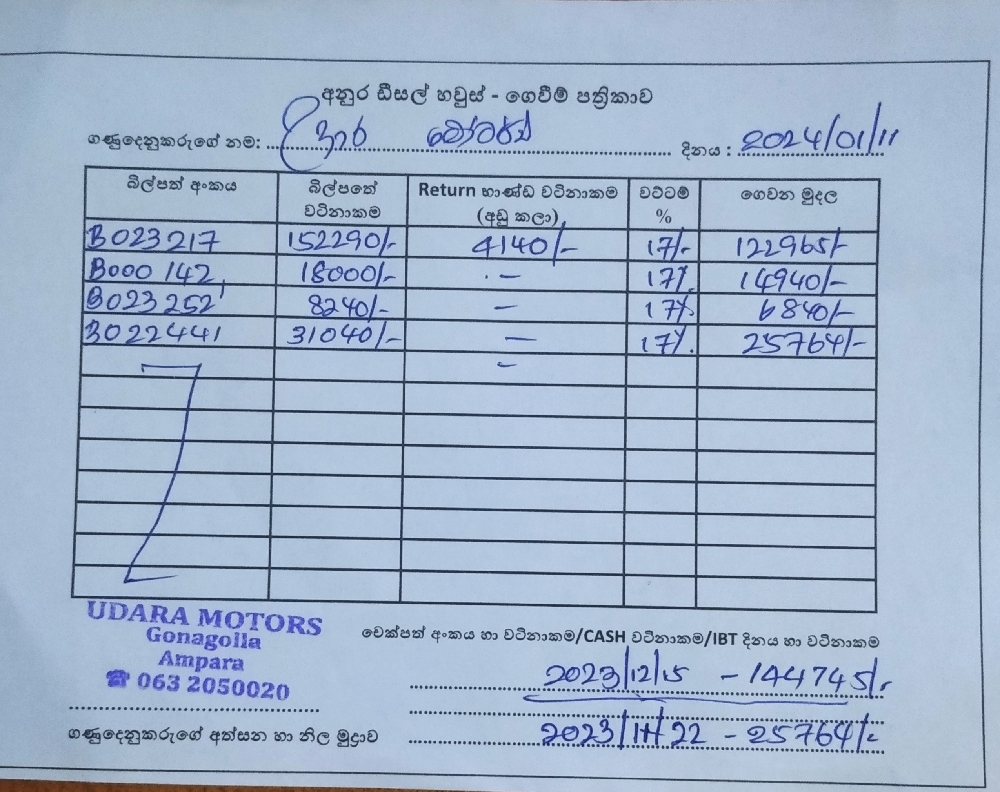 අනුර ඩීසල් හවුස් - ගෙවීම් පත්‍රිකාව
ගණුදෙනුකරුගේ නම: උදාර මෝටර්ස් දිනය : 2024/01/11
බිල්පත් අංකය බිල්පතේ වටිනාකම Return භාණ්ඩ වටිනාකම (අඩු කලා) වට්ටම් % ගෙවන මුදල
B023217 152290/- 4140/- 17/- 122965/-
B000142 18000/- - 17% 14940/-
B023252 8240/- - 17% 6840/-
B022441 31040/- - 17% 25764/-
-
UDARA MOTORS
Gonagolla
Ampara
☎ 063 2050020
චෙක්පත් අංකය හා වටිනාකම/CASH වටිනාකම/IBT දිනය හා වටිනාකම
2023/12/15 - 144745/-
2023/11/22 - 25764/-
ගණුදෙනුකරුගේ අත්සන හා නිල මුද්‍රාව